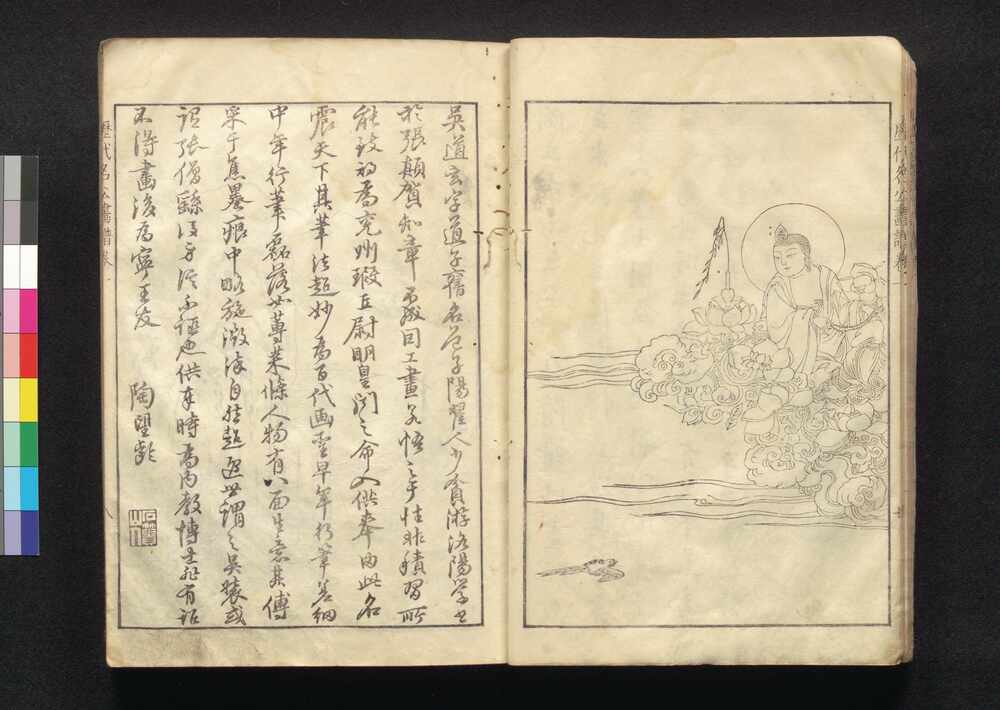 吳道玄字道子舊名道子陽翟人少貧游洛陽學書
於張顛賀知章不成因工畫若悟之于性非積習所
能致初為兗州瑕丘尉明皇聞之命入供奉由此名
震天下其筆法超妙為百代画聖早年行筆差細
中年行筆磊落如蓴菜條人物有八面生意其傅
采于焦墨痕中略施微染自然超逸世謂之吳裝或
謂張僧繇後身信不誣也供奉時為內教博士非有詔
不得畫後為寧王友
陶望齡
歷代名公畫譜卷
歷代名公畫譜卷